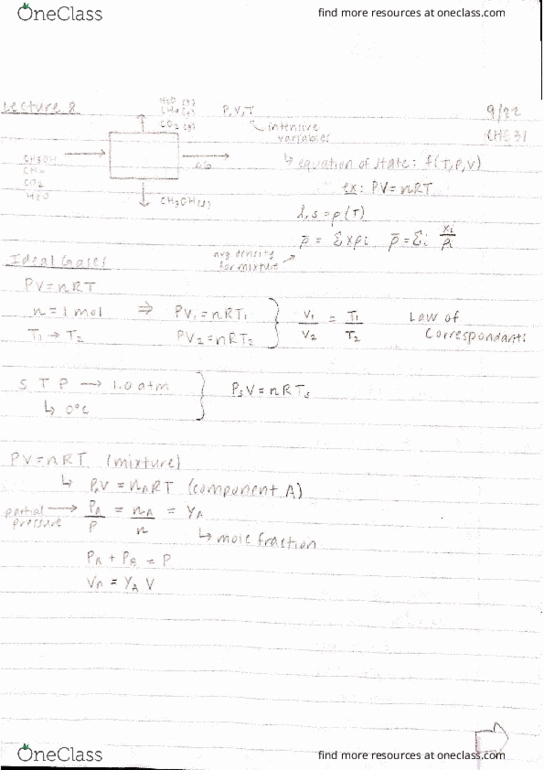 OneClass find more resources at oneclass.com
Lecture 8 9/22
CHE 31
H2O (g)
CH4 (g)
CO2 (g)
P, V, T
intensive
variables
↳ equation of state: f(T,P,V)
ex: PV = nRT
CH3OH
CH4
CO2
H2O
CH3OH(l)
l, s = ρ(T)
ρ̄ = Σ xiρi ρ̄ = Σi xi/ρi
avg density
for mixture
Ideal Gases
PV = nRT
n = 1 mol ⇒ PV1 = nRT1
T1 → T2 PV2 = nRT2
V1/V2 = T1/T2 Law of
Correspondants
S T P → 1.0 atm PsV = nRTs
↳ 0°C
PV = nRT (mixture)
↳ PAV = nART (component A)
partial pressure → PA/P = nA/n = YA
↳ mole fraction
PA + PB = P
VA = YA V
OneClass find more resources at oneclass.com